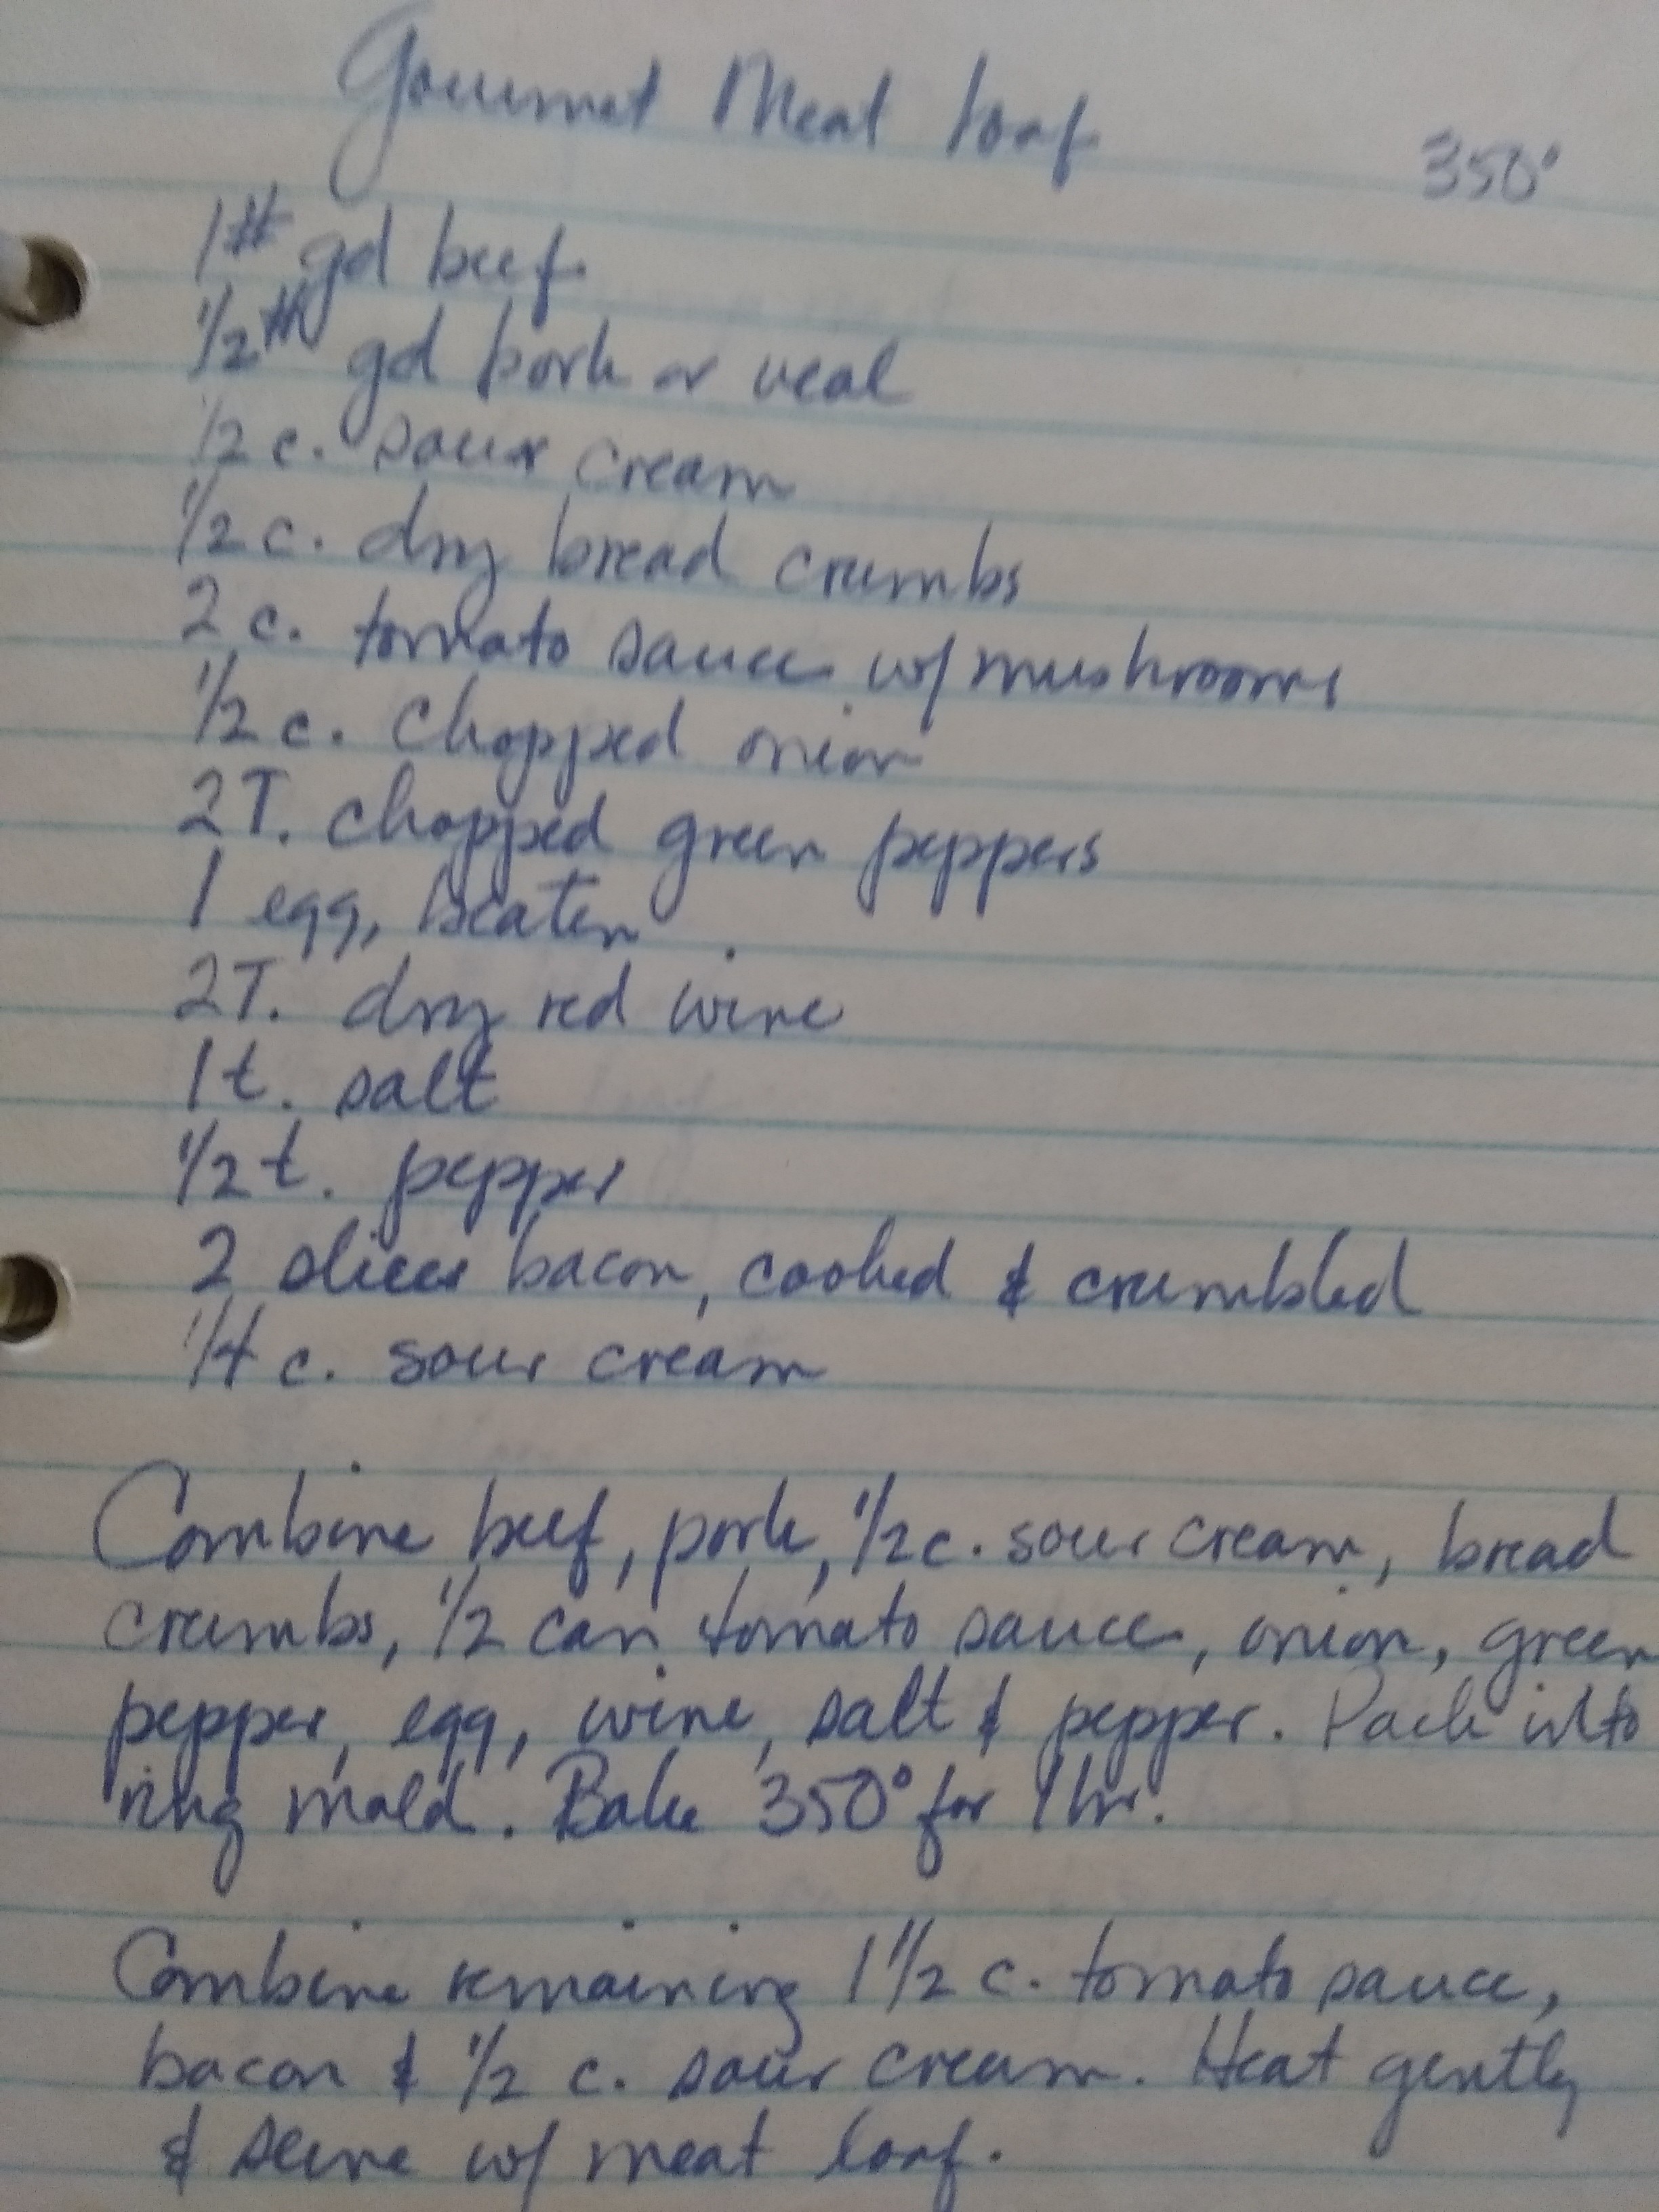 Gourmet Meat loaf
350°
1# gd beef
1/2# gd pork or veal
1/2 c. sour cream
1/2 c. dry bread crumbs
2 c. tomato sauce w/ mushrooms
1/2 c. chopped onion
2T. chopped green peppers
1 egg, beaten
2T. dry red wine
1t. salt
1/2 t. pepper
2 slices bacon, cooked & crumbled
1/4 c. sour cream
Combine beef, pork, 1/2 c. sour cream, bread
crumbs, 1/2 can tomato sauce, onion, green
pepper, egg, wine, salt & pepper. Pack into
ring mold. Bake 350° for 1 hr.
Combine remaining 1 1/2 c. tomato sauce,
bacon & 1/2 c. sour cream. Heat gently
& serve w/ meat loaf.